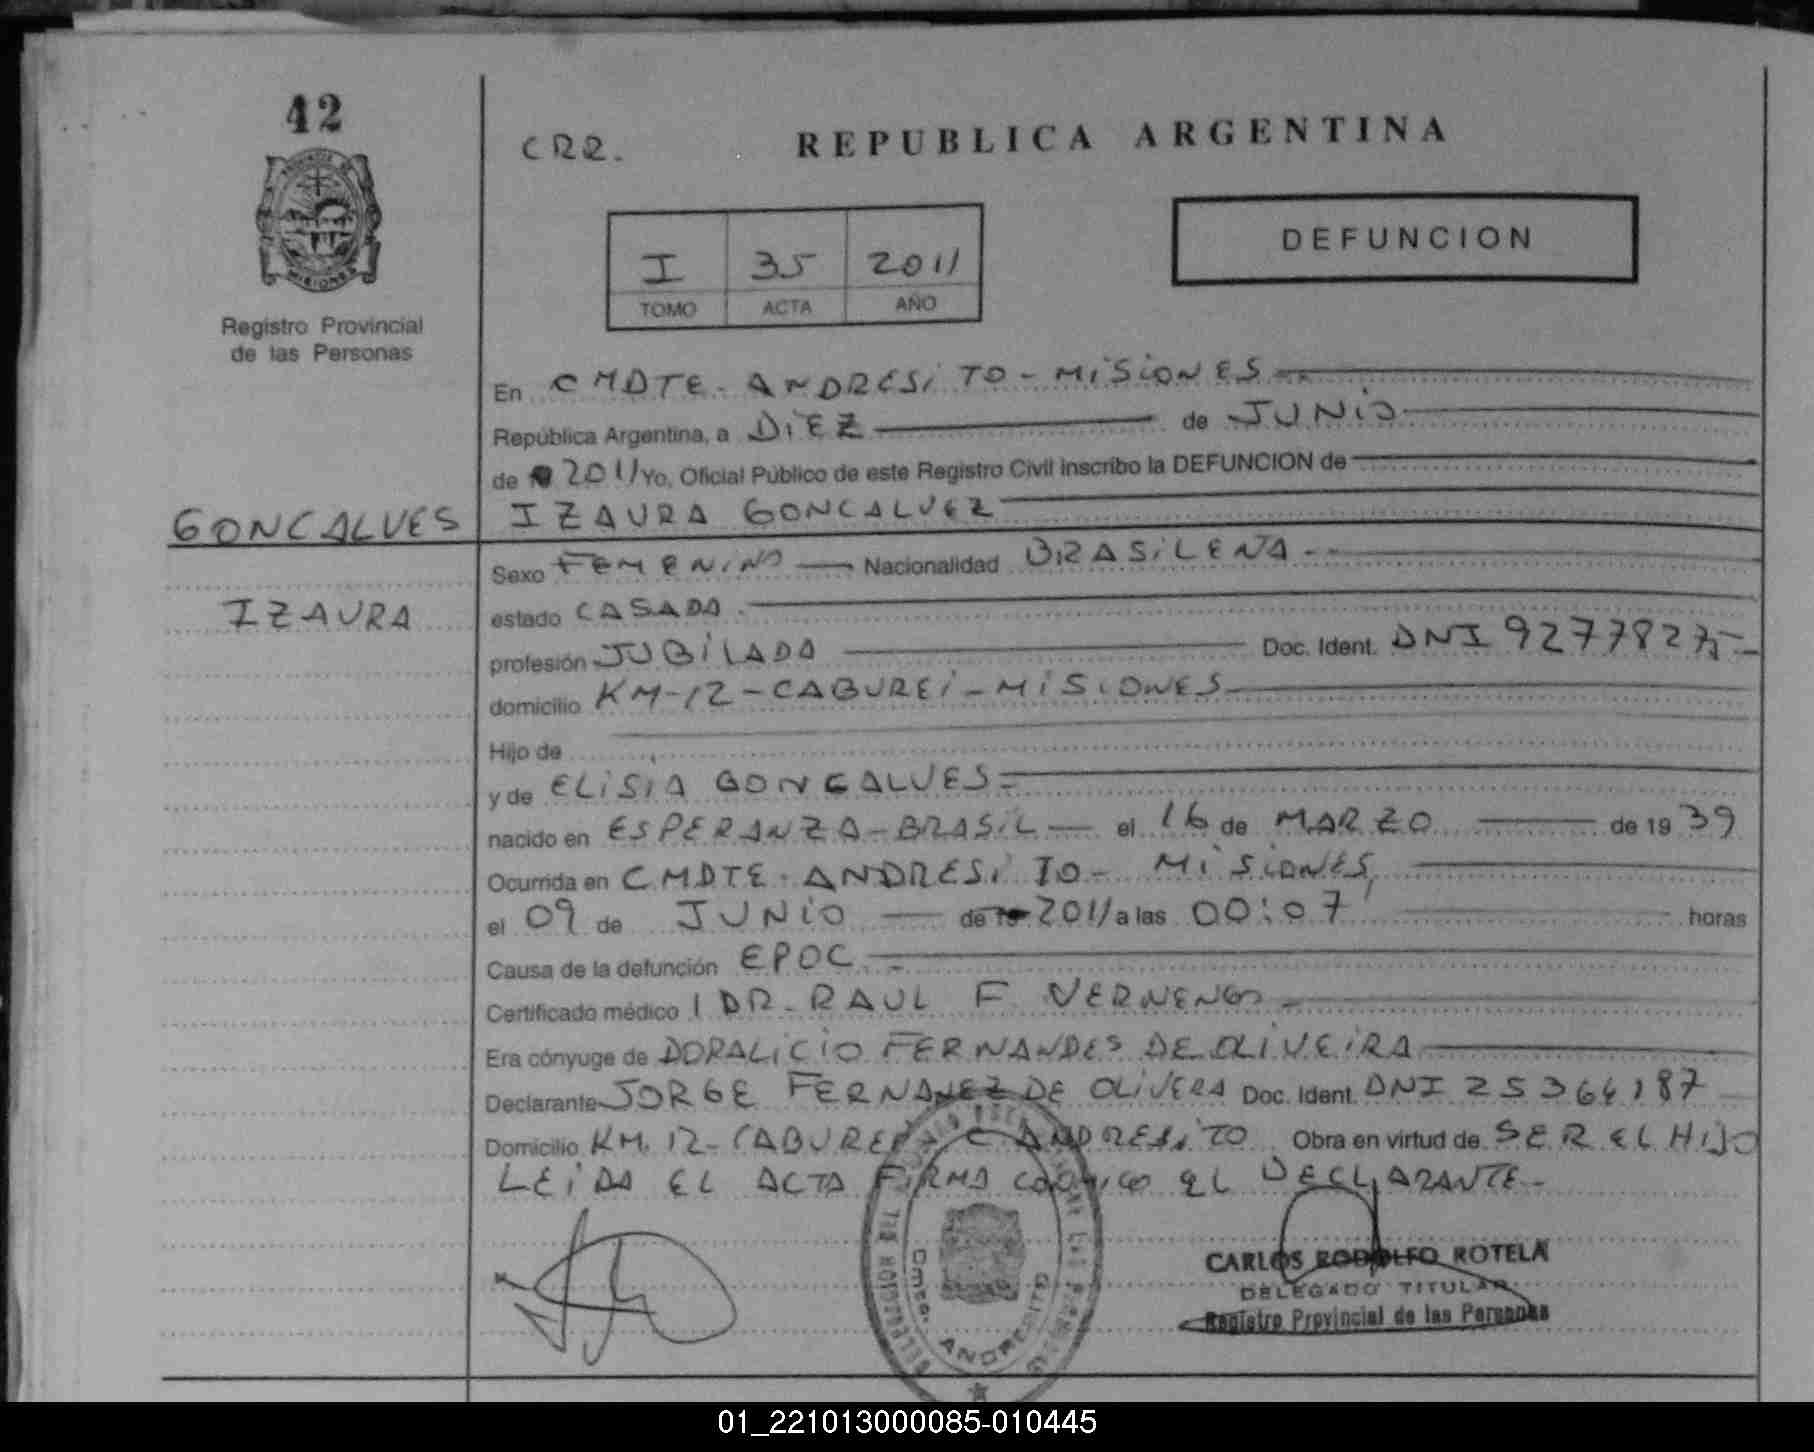 42
CRR.
REPUBLICA ARGENTINA
MISIONES
Registro Provincial
de las Personas
I 35 2011
TOMO ACTA AÑO
DEFUNCION
En CMDTE. ANDRESITO - MISIONES
República Argentina, a DIEZ de JUNIO
de 2011 Yo, Oficial Público de este Registro Civil inscribo la DEFUNCION de
GONCALVES
IZAURA
IZAURA GONCALVEZ
Sexo FEMENINO Nacionalidad BRASILEÑA
estado CASADA
profesión JUBILADA Doc. Ident. DNI
domicilio KM-12-CABUREI-MISIONES
Hijo de
y de ELISIA GONCALVES
nacido en ESPERANZA-BRASIL el 16 de MARZO de 19 39
Ocurrida en CMDTE. ANDRESITO - MISIONES,
el 09 de JUNIO de 2011 a las 00:07 horas
Causa de la defunción EPOC
Certificado médico DR. RAUL F. VERNENGO
Era cónyuge de DORALICIO FERNANDES DE OLIVEIRA
Declarante JORGE FERNANEZ DE OLIVERA Doc. Ident. DNI 25364187
Domicilio KM. 12-CABUREI C ANDRESITO Obra en virtud de SER EL HIJO
LEIDA EL ACTA FIRMA CONMIGO EL DECLARANTE-
CARLOS RODOLFO ROTELA
DELEGADO TITULAR
Registro Provincial de las Personas
Cmte. ANDRESITO
01_221013000085-010445